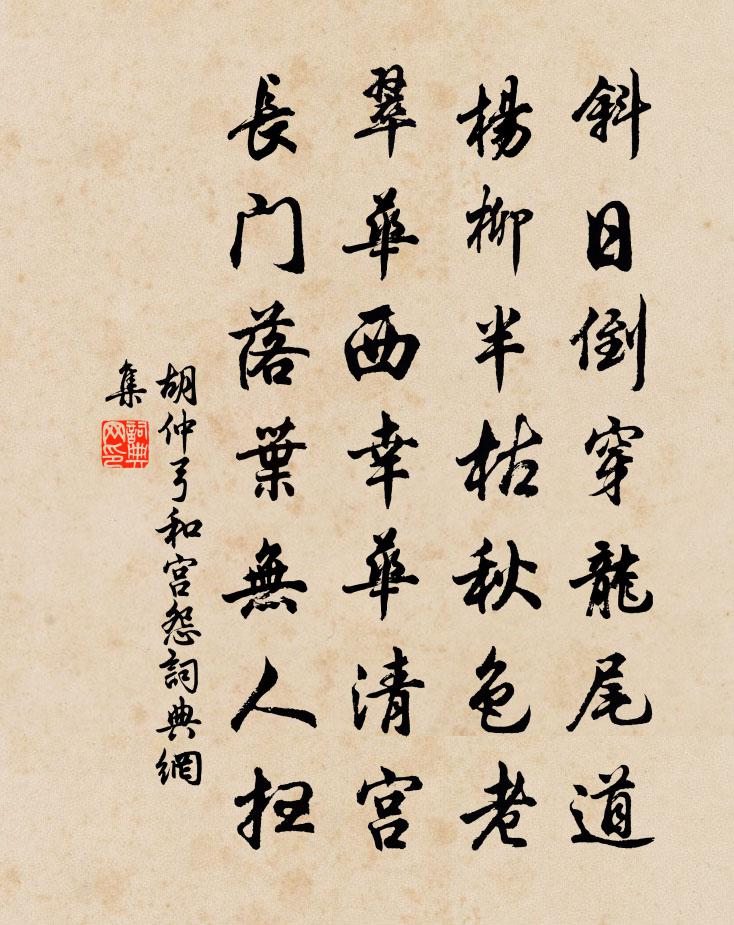 斜日倒穿龍尾道
楊柳半枯秋色老
翠華西幸華清宮
長门落葉無人扫
胡仲弓和宮怨詞典網
集
詞典
网印